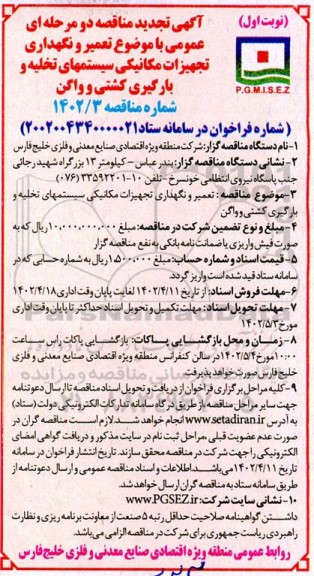 (نوبت اول)
آگهی تجدید مناقصه دو مرحله ای
عمومی با موضوع تعمیر و نگهداری
تجهیزات مکانیکی سیستمهای تخلیه و
بارگیری کشتی و واگن
شماره مناقصه ۱۴۰۲/۳
P.G.M.I.S.E.Z
( شماره فراخوان در سامانه ستاد ۲۰۰۲۰۰۴۳۴۰۰۰۰۰۲۱)
۱-نام دستگاه مناقصه گزار: شرکت منطقه ویژه اقتصادی صنایع معدنی و فلزی خلیج فارس
۲- نشانی دستگاه مناقصه گزار: بندرعباس - کیلومتر ۱۳ بزرگراه شهید رجائی
جنب پاسگاه نیروی انتظامی خونسرخ - تلفن ۱۰-۳۳۵۹۲۲۰۱ (۰۷۶)
۳-موضوع مناقصه : تعمیر و نگهداری تجهیزات مکانیکی سیستمهای تخلیه و
بارگیری کشتی و واگن
۴-مبلغ و نوع تضمین شرکت در مناقصه: مبلغ ۱۰,۰۰۰,۰۰۰,۰۰۰ ریال که به
صورت فیش واریزی یا ضمانت نامه بانکی به نفع مناقصه گزار
۵- قیمت اسناد و شماره حساب: مبلغ ۱,۵۰۰,۰۰۰ ریال به شماره حسابی که در
سامانه ستاد قید شده است واریز گردد.
۶-مهلت فروش اسناد: از تاریخ ۱۴۰۲/۴/۱۱ لغایت پایان وقت اداری ۱۴۰۲/۴/۱۸
۷- مهلت تحویل اسناد: مهلت تکمیل و تحویل اسناد حداکثر تا پایان وقت اداری
مورخ ۱۴۰۲/۵/۳
۸-زمان و محل بازگشایی پاکات: بازگشایی پاکات راس ساعت
۱۰:۰۰ مورخ ۱۴۰۲/۵/۴ در سالن کنفرانس منطقه ویژه اقتصادی صنایع معدنی و فلزی
خلیج فارس صورت خواهد پذیرفت.
۹-کلیه مراحل برگزاری فراخوان از دریافت و تحویل اسناد مناقصه تا ارسال دعوتنامه
جهت سایر مراحل مناقصه از طریق درگاه سامانه تدارکات الکترونیکی دولت (ستاد)
به آدرس www.setadiran.ir انجام خواهد شد. لازم است مناقصه گران در
صورت عدم عضویت قبلی ، مراحل ثبت نام در سایت مذکور و دریافت گواهی امضای
الکترونیکی را جهت شرکت در مناقصه محقق سازند. تاریخ انتشار فراخوان در سامانه
تاریخ ۱۴۰۲/۴/۱۱ می باشد. اطلاعات و اسناد مناقصه عمومی و ارسال دعوتنامه از
طریق سامانه ستاد به مناقصه گران ارسال خواهد شد.
۱۰-نشانی سایت شرکت: www.PGSEZ.ir
داشتن گواهینامه صلاحیت حداقل رتبه ۵ صنعت از معاونت برنامه ریزی و نظارت
راهبردی ریاست جمهوری برای شرکت در مناقصه الزامی می باشد.
روابط عمومی منطقه ویژه اقتصادی صنایع معدنی و فلزی خلیج فارس